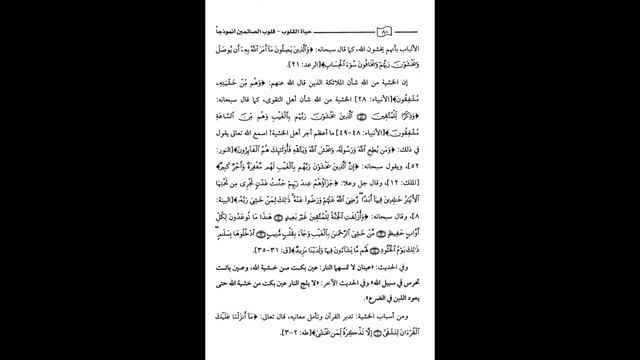 ٨٠
حياة القلوب - قلوب الصائمين أنموذجاً
الألباب بأنهم يخشون الله، كما قال سبحانه: ﴿وَالَّذِينَ يَصِلُونَ مَا أَمَرَ اللَّهُ بِهِ أَن يُوصَلَ
وَيَخْشَوْنَ رَبَّهُمْ وَيَخَافُونَ سُوءَ الْحِسَابِ﴾[الرعد: ٢١].
إن الخشية من الله شأن الملائكة الذين قال الله عنهم: ﴿وَهُم مِّنْ خَشْيَتِهِ
مُشْفِقُونَ﴾[الأنبياء: ٢٨] الخشية من الله شأن أهل التقوى، كما قال سبحانه:
﴿وَذِكْرًا لِّلْمُتَّقِينَ ۝ الَّذِينَ يَخْشَوْنَ رَبَّهُم بِالْغَيْبِ وَهُم مِّنَ السَّاعَةِ
مُشْفِقُونَ﴾[الأنبياء: ٤٨-٤٩] ما أعظم أجر أهل الخشية! اسمع الله تعالى يقول
في ذلك: ﴿وَمَن يُطِعِ اللَّهَ وَرَسُولَهُ وَيَخْشَ اللَّهَ وَيَتَّقْهِ فَأُولَٰئِكَ هُمُ الْفَائِزُونَ﴾[النور:
٥٢]، ويقول سبحانه: ﴿إِنَّ الَّذِينَ يَخْشَوْنَ رَبَّهُم بِالْغَيْبِ لَهُم مَّغْفِرَةٌ وَأَجْرٌ كَبِيرٌ﴾
[الملك: ١٢]، وقال جل وعلا: ﴿جَزَاؤُهُمْ عِندَ رَبِّهِمْ جَنَّاتُ عَدْنٍ تَجْرِي مِن تَحْتِهَا
الْأَنْهَارُ خَالِدِينَ فِيهَا أَبَدًا ۖ رَّضِيَ اللَّهُ عَنْهُمْ وَرَضُوا عَنْهُ ۚ ذَٰلِكَ لِمَنْ خَشِيَ رَبَّهُ﴾[البينة:
٨]، وقال سبحانه: ﴿وَأُزْلِفَتِ الْجَنَّةُ لِلْمُتَّقِينَ غَيْرَ بَعِيدٍ ۝ هَٰذَا مَا تُوعَدُونَ لِكُلِّ
أَوَّابٍ حَفِيظٍ ۝ مَّنْ خَشِيَ الرَّحْمَٰنَ بِالْغَيْبِ وَجَاءَ بِقَلْبٍ مُّنِيبٍ ۝ ادْخُلُوهَا بِسَلَامٍ ۖ
ذَٰلِكَ يَوْمُ الْخُلُودِ ۝ لَهُم مَّا يَشَاءُونَ فِيهَا وَلَدَيْنَا مَزِيدٌ﴾[ق: ٣١-٣٥].
وفي الحديث: «عينان لا تمسهما النار: عين بكت من خشية الله، وعين باتت
تحرس في سبيل الله» وفي الحديث الآخر: «لا يلج النار عين بكت من خشية الله حتى
يعود اللبن في الضرع».
ومن أسباب الخشية: تدبر القرآن وتأمل معانيه، قال تعالى: ﴿مَا أَنزَلْنَا عَلَيْكَ
الْقُرْآنَ لِتَشْقَىٰ ۝ إِلَّا تَذْكِرَةً لِّمَن يَخْشَىٰ﴾[طه: ٢-٣].